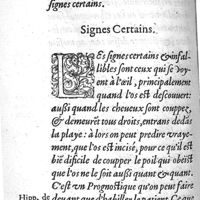 signes certains.
Signes Certains.
LEs signes certains & infal-
libles sont ceux qui se voy-
ent à l'œil, principalement
quand l'os est descouuert:
außi quand les cheueux sont couppez,
& demeurẽt tous droits, entrãt dedãs
la playe: à lors on peut predire vraye-
ment, que l'os est incisé, pour ce qu'il est
biẽ dificile de coupper le poil qui obëist
que l'os ne le soit außi quant & quant.
C'est vn Prognostique qu'on peut faire
Hipp. de deuant que d'habiller le patient. Ce que